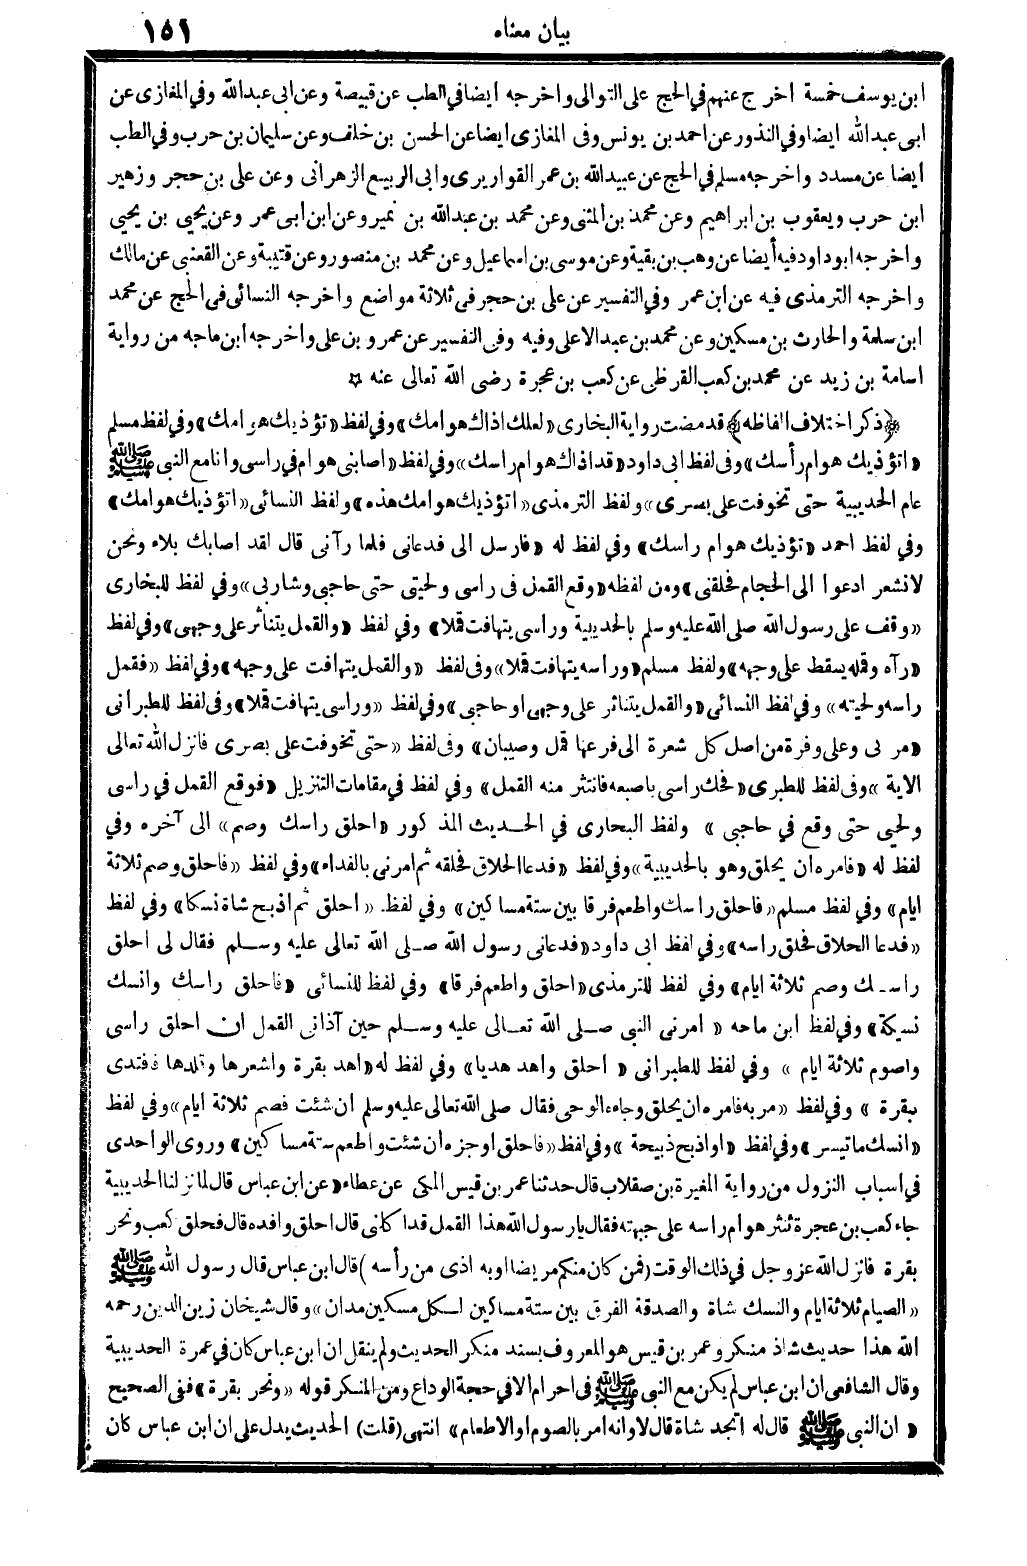 بيان معناه ١٥١
ابن يوسف خمسة اخرج عنهم في الحج على التوالى واخرجه ايضا في الطب عن قبيصة وعن ابى عبدالله وفي المغازى عن
ابى عبدالله ايضا وفي النذور عن احمد بن يونس وفى المغازى ايضا عن الحسن بن خلف وعن سليمان بن حرب وفي الطب
أيضا عن مسدد واخرجه مسلم في الحج عن عبيدالله بن عمر القواريرى وابى الربيع الزهرانى وعن على بن حجر وزهير
ابن حرب ويعقوب بن ابراهيم وعن محمد بن المثنى وعن محمد بن عبدالله بن نمير وعن ابن أبى عمر وعن يحيى بن يحيى
واخرجه ابو داود فيه أيضا عن وهب بن بقية وعن موسى بن اسماعيل وعن محمد بن منصور وعن قتيبة وعن القعنبى عن مالك
واخرجه الترمذى فيه عن ابن عمر وفي التفسير عن على بن حجر فى ثلاثة مواضع واخرجه النسائى فى الحج عن محمد
ابن سلمة والحارث بن مسكين وعن محمد بن عبد الاعلى وفيه وفى التفسير عن عمرو بن على واخرجه ابن ماجه من رواية
اسامة بن زيد عن محمد بن كعب القرظى عن كعب بن عجرة رضى الله تعالى عنه ☆
﴿ذكر اختلاف الفاظه﴾ قد مضت رواية البخارى «لعلك اذاك هوامك» وفي لفظ «تؤذيك هوامك» وفي لفظ مسلم
«اتؤذيك هوام رأسك» وفى لفظ ابى داود «قد اذاك هوام راسك» وفي لفظ «اصابنى هوام في راسى وانا مع النبى ﷺ
عام الحديبية حتى تخوفت على بصرى» ولفظ الترمذى «اتؤذيك هوامك هذه» ولفظ النسائى «اتؤذيك هوامك»
وفي لفظ احمد «تؤذيك هوام راسك» وفي لفظ له «فارسل الى فدعانى فلما رآنى قال لقد اصابك بلاء ونحن
لانشعر ادعوا الى الحجام فحلقنى» ومن لفظه «وقع القمل فى راسى ولحيتى حتى حاجبى وشاربى» وفي لفظ للبخارى
«وقف على رسول الله صلى الله عليه وسلم بالحديبية وراسى يتهافت قملا» وفي لفظ «والقمل يتناثر على وجهى» وفي لفظ
«رآه وقمله يسقط على وجهه» ولفظ مسلم «وراسه يتهافت قملا» وفى لفظ «والقمل يتهافت على وجهه» وفي لفظ «فقمل
راسه ولحيته» وفي لفظ النسائى «والقمل يتناثر على وجهى او حاجبى» وفي لفظ «وراسى يتهافت قملا» وفى لفظ للطبرانى
«مر بى وعلى وفرة من اصل كل شعرة الى فرعها قمل وصيبان» وفى لفظ «حتى تخوفت على بصرى فانزل الله تعالى
الاية» وفى لفظ للطبرى «فحك راسى باصبعه فانتثر منه القمل» وفي لفظ في مقامات التنزيل «فوقع القمل في راسى
ولحيى حتى وقع في حاجبى» ولفظ البخارى في الحديث المذكور «احلق راسك وصم» الى آخره وفي
لفظ له «فامره ان يحلق وهو بالحديبية» وفي لفظ «فدعا الحلاق فحلقه ثم امرنى بالفداء» وفي لفظ «فاحلق وصم ثلاثة
ايام» وفي لفظ مسلم «فاحلق راسك واطعم فرقا بين ستة مساكين» وفي لفظ «احلق ثم اذبح شاة نسكا» وفي لفظ
«فدعا الحلاق فحلق راسه» وفي لفظ ابى داود «فدعانى رسول الله صلى الله تعالى عليه وسلم فقال لى احلق
راسك وصم ثلاثة ايام» وفي لفظ للترمذى «احلق واطعم فرقا» وفي لفظ للنسائى «فاحلق راسك وانسك
نسيكة» وفي لفظ ابن ماحه «امرنى النبى صلى الله تعالى عليه وسلم حين آذانى القمل ان احلق راسى
واصوم ثلاثة ايام» وفي لفظ للطبرانى «احلق واهد هديا» وفي لفظ له «اهد بقرة واشعرها وقلدها فافتدى
ببقرة» وفي لفظ «مر به فامره ان يحلق وجاءه الوحى فقال صلى الله تعالى عليه وسلم ان شئت فصم ثلاثة ايام» وفي لفظ
«انسك ما تيسر» وفي لفظ «او اذبح ذبيحة» وفي لفظ «فاحلق او جزه ان شئت واطعم ستة مساكين» وروى الواحدى
في اسباب النزول من رواية المغيرة بن صقلاب قال حدثنا عمر بن قيس المكى عن عطاء «عن ابن عباس قال لما نزلنا الحديبية
جاء كعب بن عجرة تنثر هوام راسه على جبهته فقال يارسول الله هذا القمل قد اكلنى قال احلق وافده قال فحلق كعب ونحر
بقرة فانزل الله عز وجل في ذلك الوقت (فمن كان منكم مريضا او به اذى من رأسه) قال ابن عباس قال رسول الله ﷺ
«الصيام ثلاثة ايام والنسك شاة والصدقة الفرق بين ستة مساكين لكل مسكين مدان» وقال شيخنا زين الدين رحمه
الله هذا حديث شاذ منكر وعمر بن قيس هو المعروف بسند منكر الحديث ولم ينقل ان ابن عباس كان في عمرة الحديبية
وقال الشافعى ان ابن عباس لم يكن مع النبى ﷺ في احرام الا في حجة الوداع ومن المنكر قوله «ونحر بقرة» ففى الصحيح
«ان النبى ﷺ قال له اتجد شاة قال لا وانه امر بالصوم او الاطعام» انتهى (قلت) الحديث يدل على ان ابن عباس كان